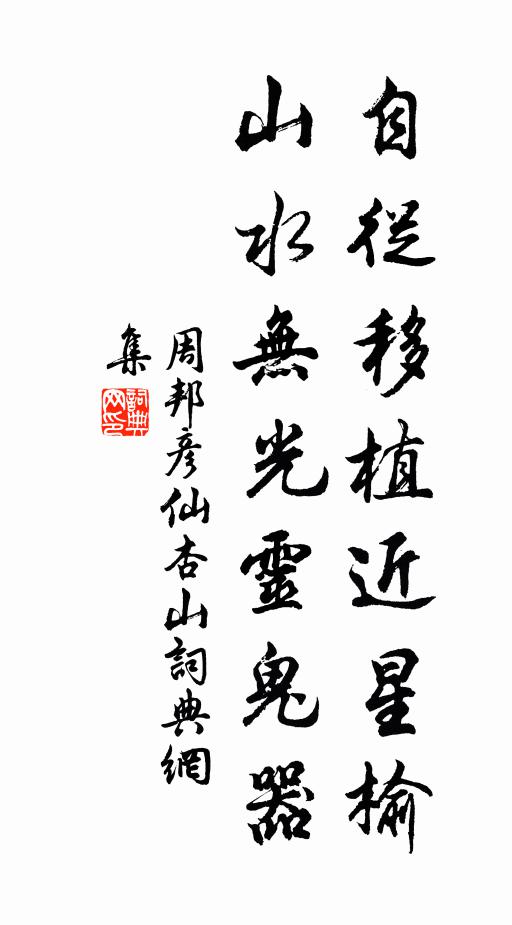 自從移植近星榆
山水無光靈鬼器
周邦彥仙杏山詞典網
集
詞典
网印